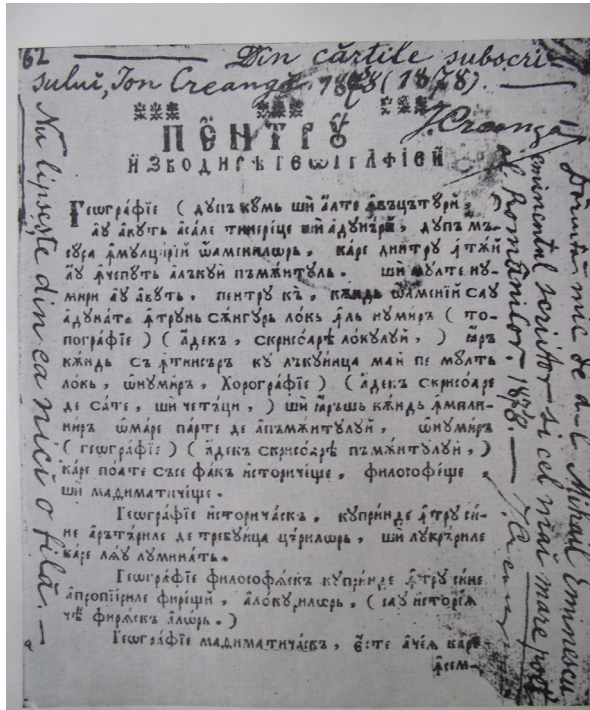 62 — Din cărțile subscri-
sului, Ion Creangă. 1878 (1878). —
I Creangă
ПЄНТРꙊ
ИЗВОДИРѢ ГЕѠГРАФІЕЙ
Геѡгра́фїе ( дꙋпъ кꙋмь ши́ а҆лте ꙟ҆въцътꙋрй, )
а҆ꙋ а҆вꙋть а҆сале тинере́це ши́ а҆дꙋна́рй, дꙋпъ мъ-
сꙋра ꙟ҆мꙋлци́рїй ѡ҆аменилѡрь, ка́ре динтрꙋ ꙟ҆тѫй
а҆ꙋ ꙟ҆чепꙋть алъкꙋй пъмѫнтꙋль. ши мꙋлте нꙋ-
мири а҆ꙋ а҆вꙋть, пентрꙋ къ, кѫндь ѡ҆аменїй саꙋ
адꙋнат. ꙟ҆трꙋнь сѫнгꙋрь локь ꙟ҆ль нꙋмирь ( то-
погра́фїе ) ( а҆декъ, скрисоарѣ локꙋлꙋй, ) ꙗ҆ръ
кѫндь съ ꙟ҆тинсъръ кꙋ лъкꙋинца май пе мꙋлть
локь, ѡ҆нꙋмиръ, Хорогра́фїе ) ( а҆декъ скрисоаре
де са́те, ши четъци, ) ши́ ꙗ҆ръшь кѫндь ꙟ҆мпли-
ниръ ѡ҆ма́ре па́рте де а҆пъмѫнтꙋлꙋй, ѡ҆нꙋмиръ
( геѡгра́фїе ) ( а҆декъ скрисоарѣ пъмѫнтꙋлꙋй, )
ка́ре поа́те съсе фа́къ и҆сториче́ще, философе́ще,
ши мадиматиче́ще.
Геѡгра́фїе и҆сторичѣскъ, кꙋпри́нде ꙟ҆трꙋ си́-
не а҆рътъриле де требꙋинца църилѡрь, ши лꙋкрꙋриле
ка́ре лѧꙋ лꙋмина́ть.
Геѡгра́фїе философѣскъ кꙋпри́нде ꙟ҆трꙋ си́не
а҆пропїириле фире́щй, а҆локꙋрилѡрь, ( саꙋ и҆сторїа
чѣ фирѣскъ а҆лѡрь. )
Геѡгра́фїе мадиматичѣскъ, є҆сте а҆чѣѧ ка́ре
ꙟ҆сем-
Nu lipsește din ea nici o filă. —
Dăruită mie de d-l Mihail Eminescu
eminentul scriitor și cel mai mare poet
al Românilor. 1878. —